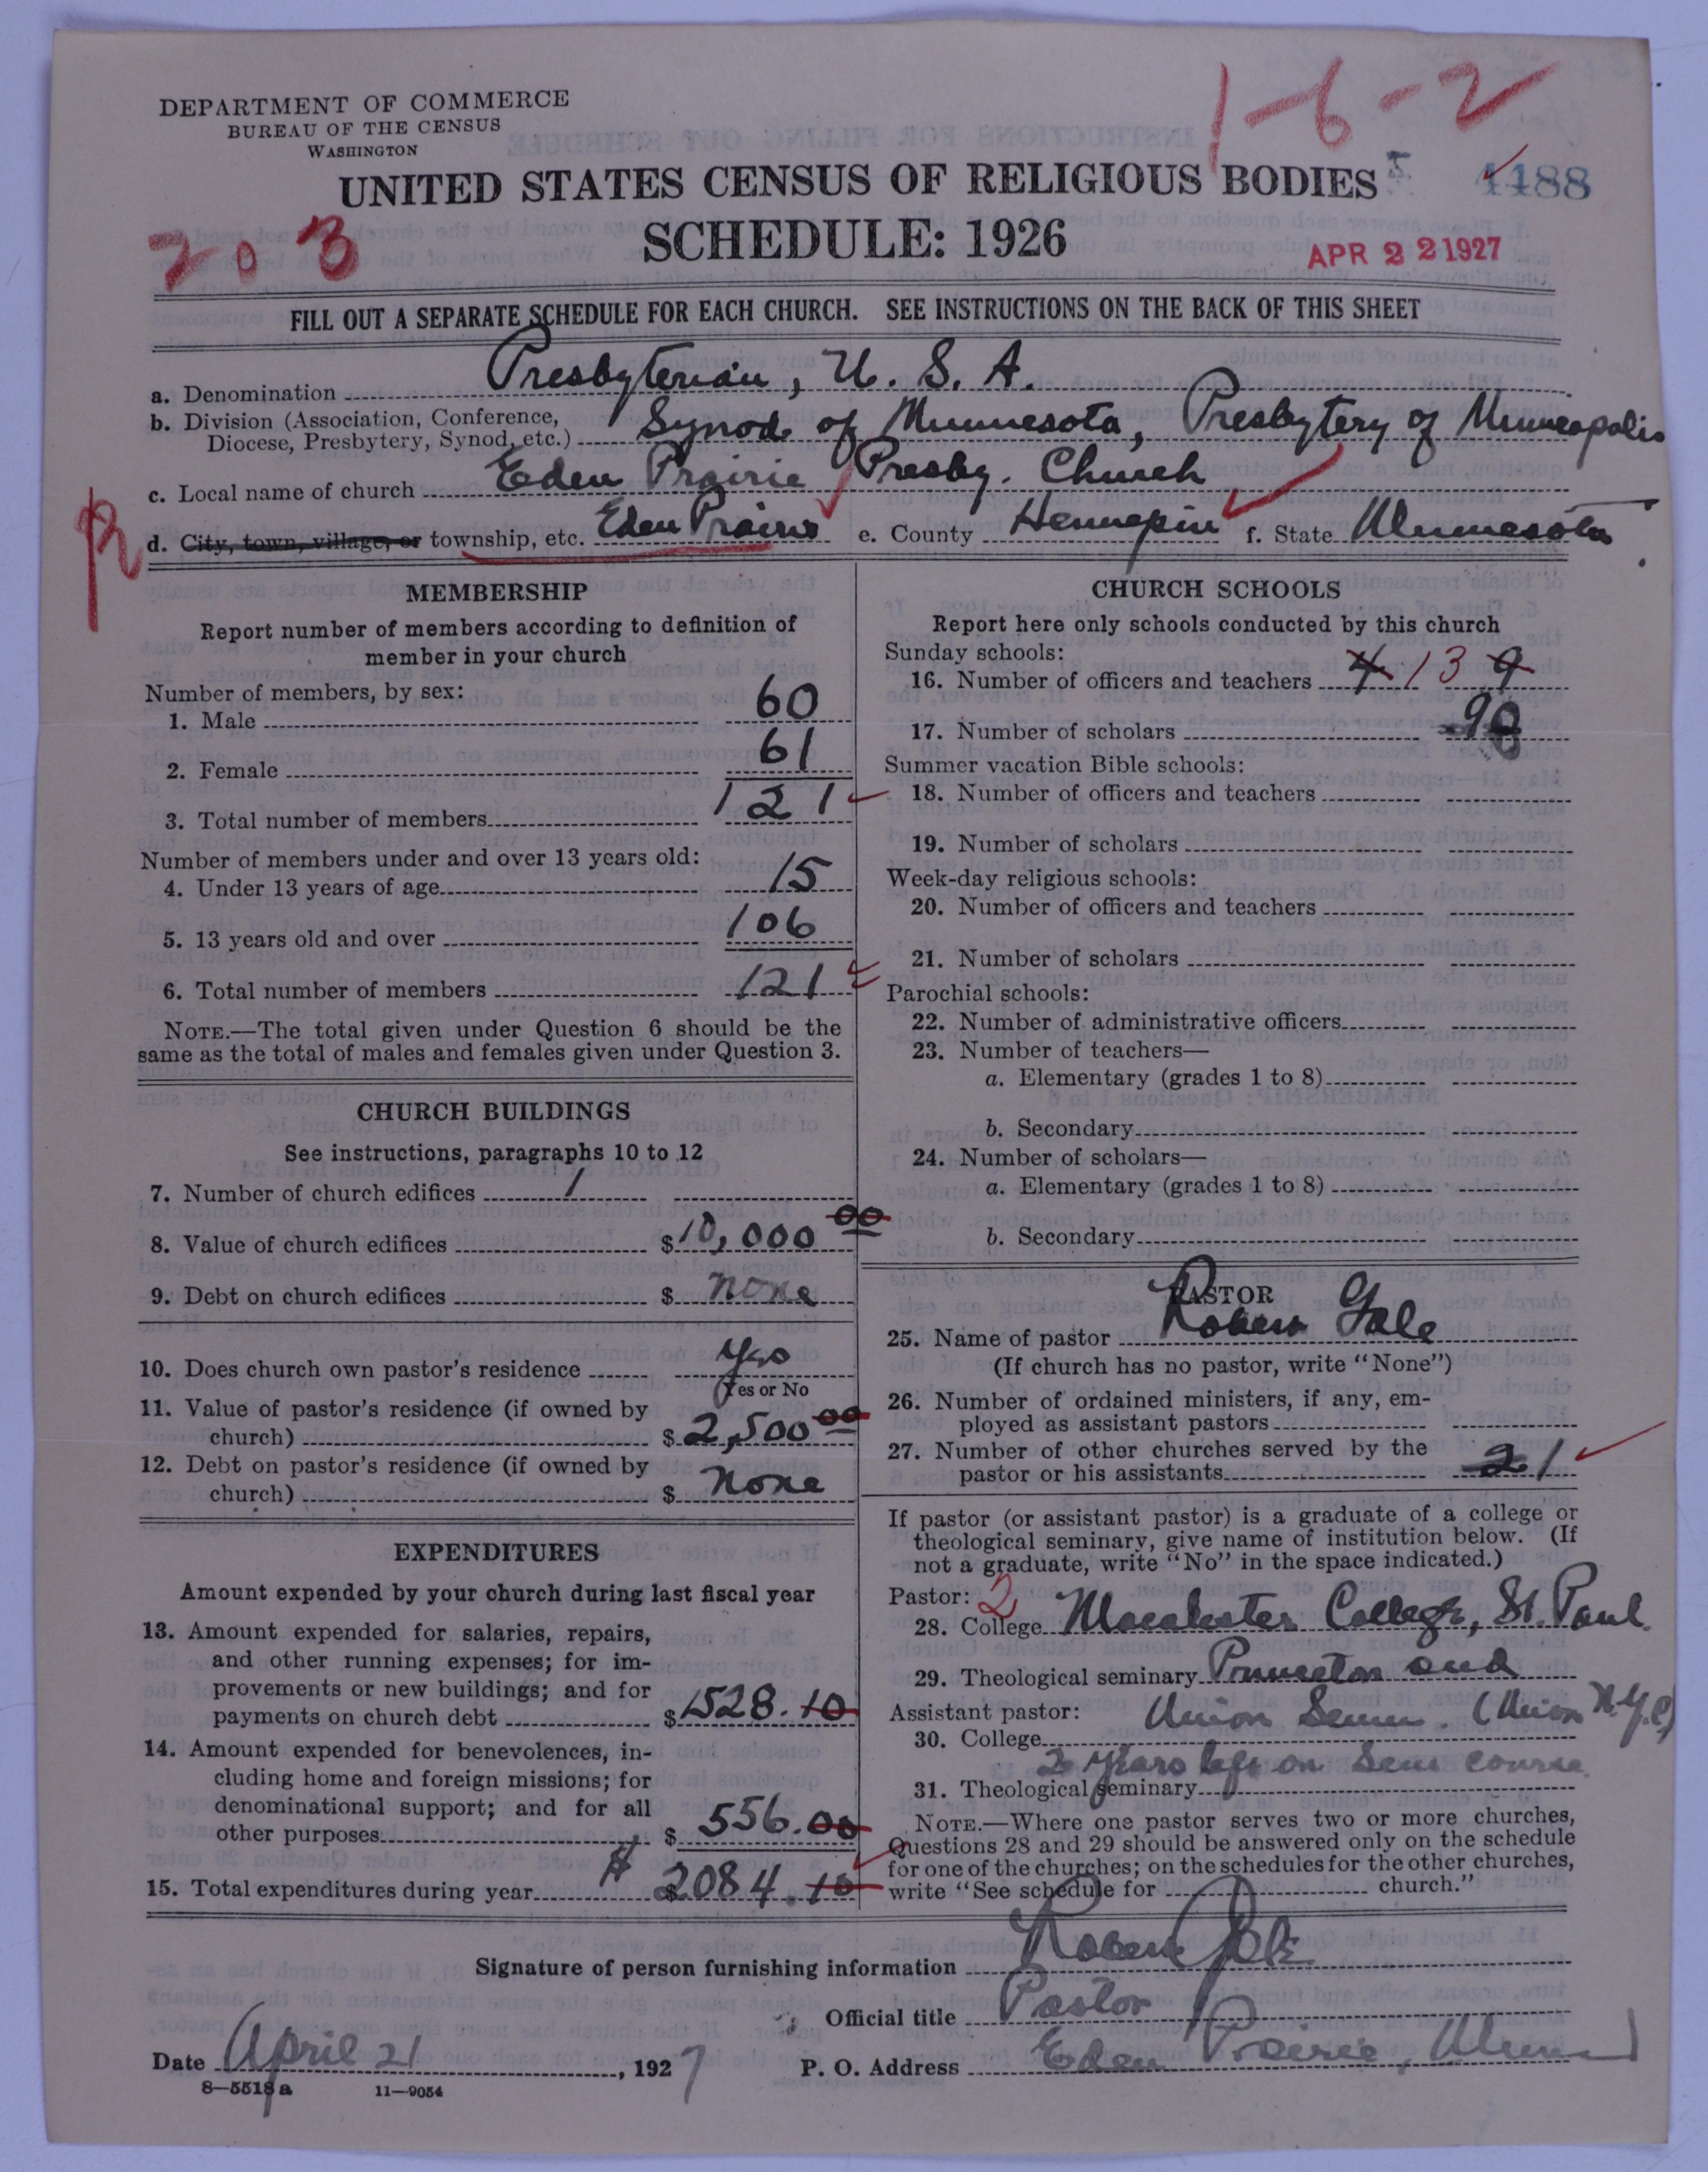 1-6-2
DEPARTMENT OF COMMERCE
BUREAU OF THE CENSUS
WASHINGTON
UNITED STATES CENSUS OF RELIGIOUS BODIES
4188
SCHEDULE: 1926
203
APR 22 1927
FILL OUT A SEPARATE SCHEDULE FOR EACH CHURCH. SEE INSTRUCTIONS ON THE BACK OF THIS SHEET
a. Denomination Presbyterian, U. S. A.
b. Division (Association, Conference,
Diocese, Presbytery, Synod, etc.) Synod of Minnesota, Presbytery of Minneapolis
c. Local name of church Eden Prairie Presby. Church
R
d. City, town, village, or township, etc. Eden Prairie e. County Hennepin f. State Minnesota
MEMBERSHIP
Report number of members according to definition of
member in your church
Number of members, by sex:
1. Male 60
2. Female 61
3. Total number of members 121
Number of members under and over 13 years old:
4. Under 13 years of age 15
5. 13 years old and over 106
6. Total number of members 121
NOTE.—The total given under Question 6 should be the
same as the total of males and females given under Question 3.
CHURCH BUILDINGS
See instructions, paragraphs 10 to 12
7. Number of church edifices 1
8. Value of church edifices $10,000 00
9. Debt on church edifices $ none
10. Does church own pastor's residence yes
Yes or No
11. Value of pastor's residence (if owned by
church) $2,500 00
12. Debt on pastor's residence (if owned by
church) $ none
EXPENDITURES
Amount expended by your church during last fiscal year
13. Amount expended for salaries, repairs,
and other running expenses; for im-
provements or new buildings; and for
payments on church debt $1528.10
14. Amount expended for benevolences, in-
cluding home and foreign missions; for
denominational support; and for all
other purposes $ 556.00
15. Total expenditures during year $ $2084.10
CHURCH SCHOOLS
Report here only schools conducted by this church
Sunday schools:
16. Number of officers and teachers 4 13 9
17. Number of scholars 90
Summer vacation Bible schools:
18. Number of officers and teachers
19. Number of scholars
Week-day religious schools:
20. Number of officers and teachers
21. Number of scholars
Parochial schools:
22. Number of administrative officers
23. Number of teachers—
a. Elementary (grades 1 to 8)
b. Secondary
24. Number of scholars—
a. Elementary (grades 1 to 8)
b. Secondary
PASTOR
25. Name of pastor Robert Gale
(If church has no pastor, write "None")
26. Number of ordained ministers, if any, em-
ployed as assistant pastors
27. Number of other churches served by the
pastor or his assistants 2 1
If pastor (or assistant pastor) is a graduate of a college or
theological seminary, give name of institution below. (If
not a graduate, write "No" in the space indicated.)
Pastor: 2
28. College Macalester College, St. Paul
29. Theological seminary Princeton and
Assistant pastor: Union Semn. (Union N.Y.C)
30. College
2 years left on Sem course
31. Theological seminary
NOTE.—Where one pastor serves two or more churches,
Questions 28 and 29 should be answered only on the schedule
for one of the churches; on the schedules for the other churches,
write "See schedule for church."
Signature of person furnishing information Robert Gale
Official title Pastor
Date April 21, 1927 P. O. Address Eden Prairie, Minn
8—5518 a 11—9054